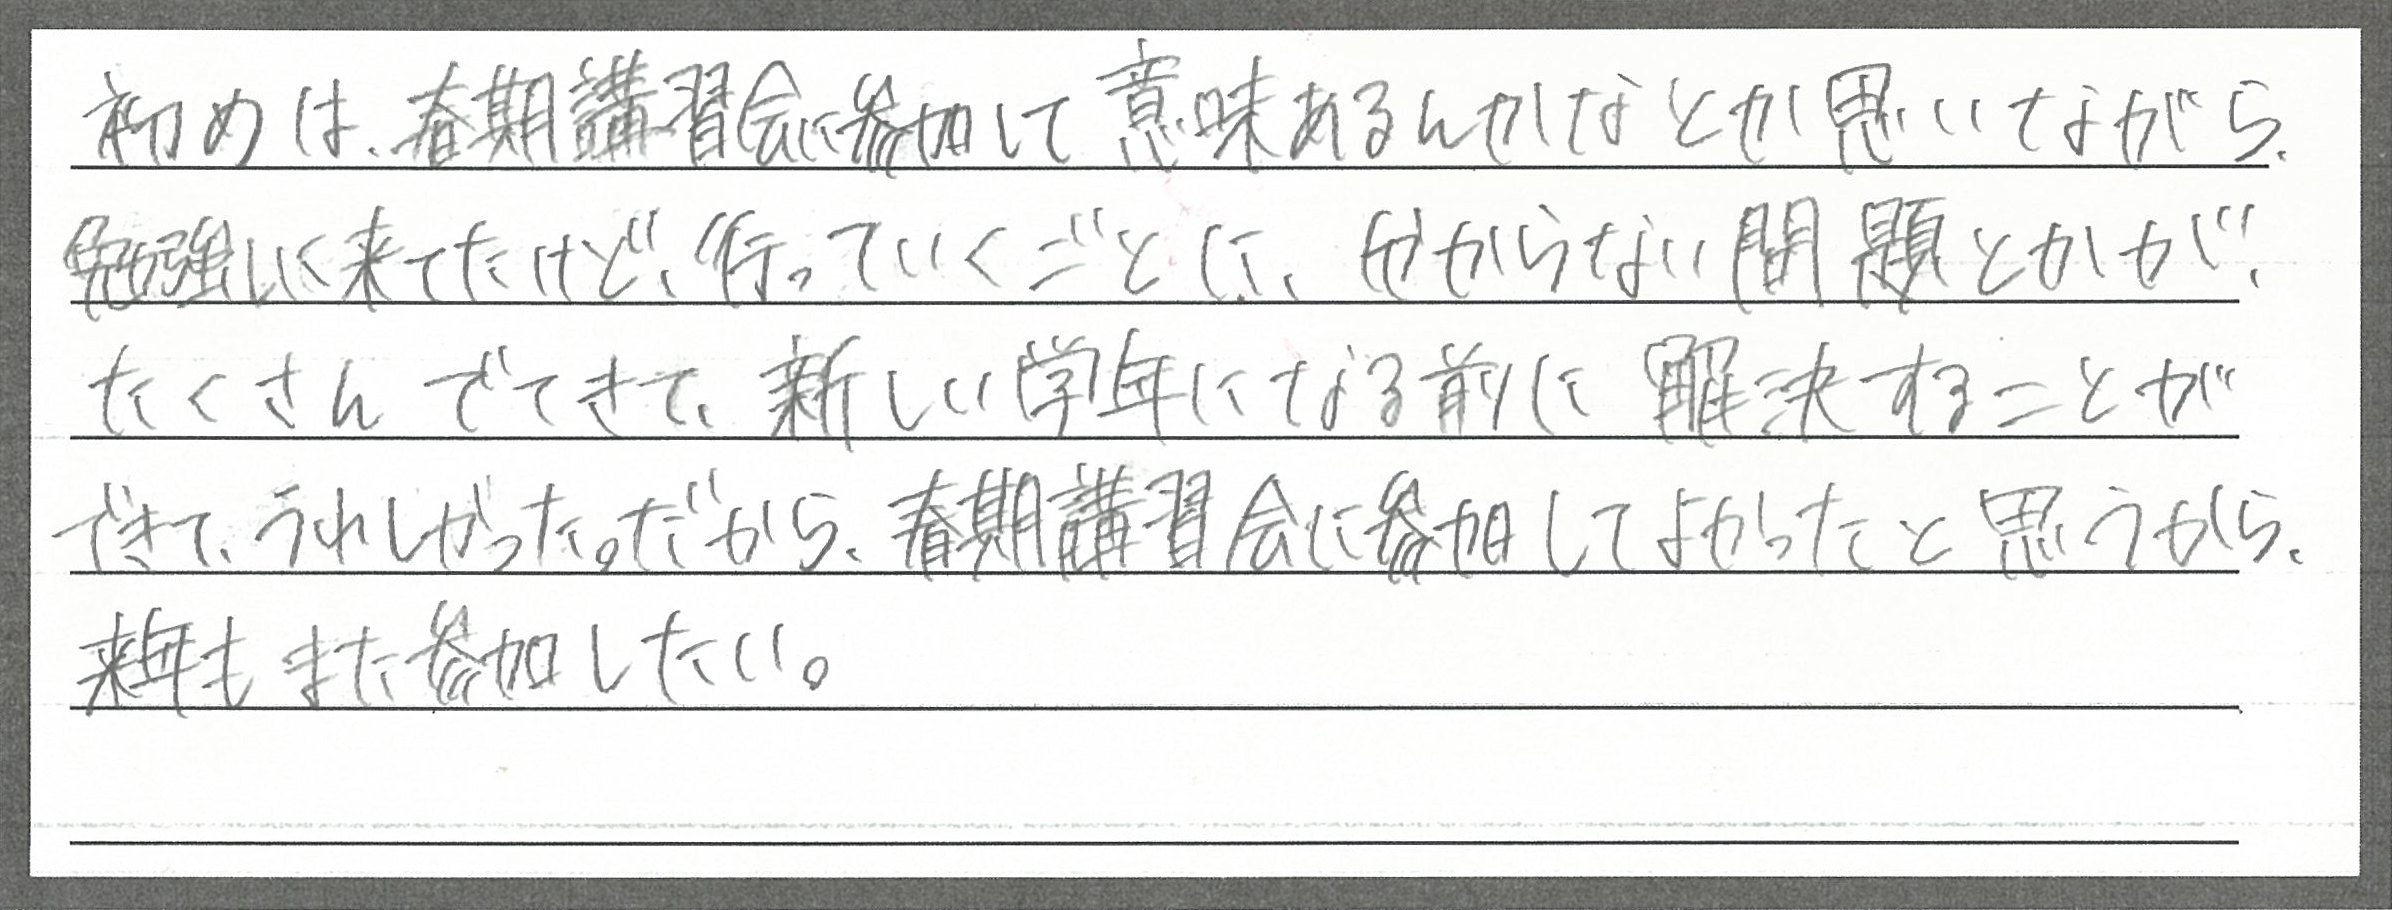 初めは、春期講習会に参加して意味あるんかなとか思いながら、
勉強しに来てたけど、行っていくごとに、分からない問題とかが、
たくさんでてきて、新しい学年になる前に解決することが
できて、うれしかった。だから、春期講習会に参加してよかったと思うから、
来年もまた参加したい。